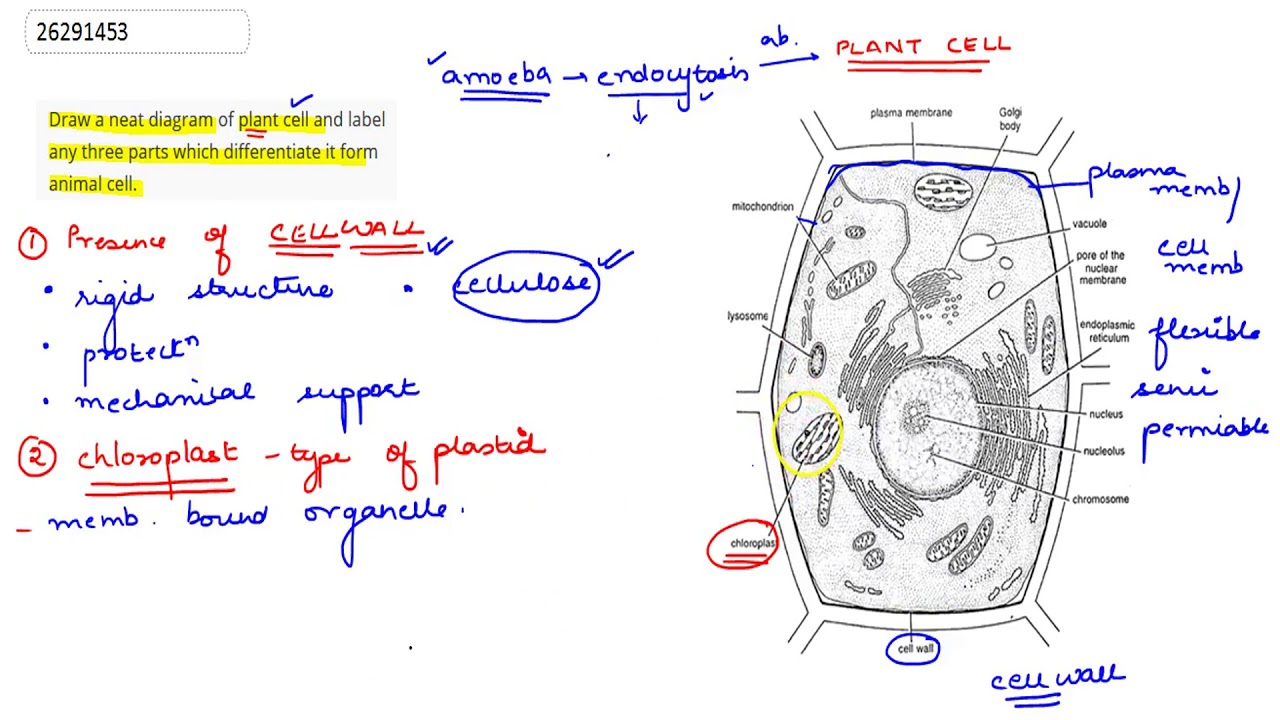 26291453
Draw a neat diagram of plant cell and label
any three parts which differentiate it form
animal cell.
amoeba → endocytosis
ab.
PLANT CELL
① Presence of CELLWALL
• rigid structure • cellulose
• protectⁿ
• mechanisal support
② chloroplast - type of plastid
- memb. bound organelle.
plasma membrane
Golgi
body
mitochondrion
vacuole
pore of the
nuclear
membrane
lysosome
endoplasmic
reticulum
nucleus
nucleolus
chromosome
chloroplast
cell wall
plasma
memb/
cell
memb
flexible
semi
permiable
cell wall